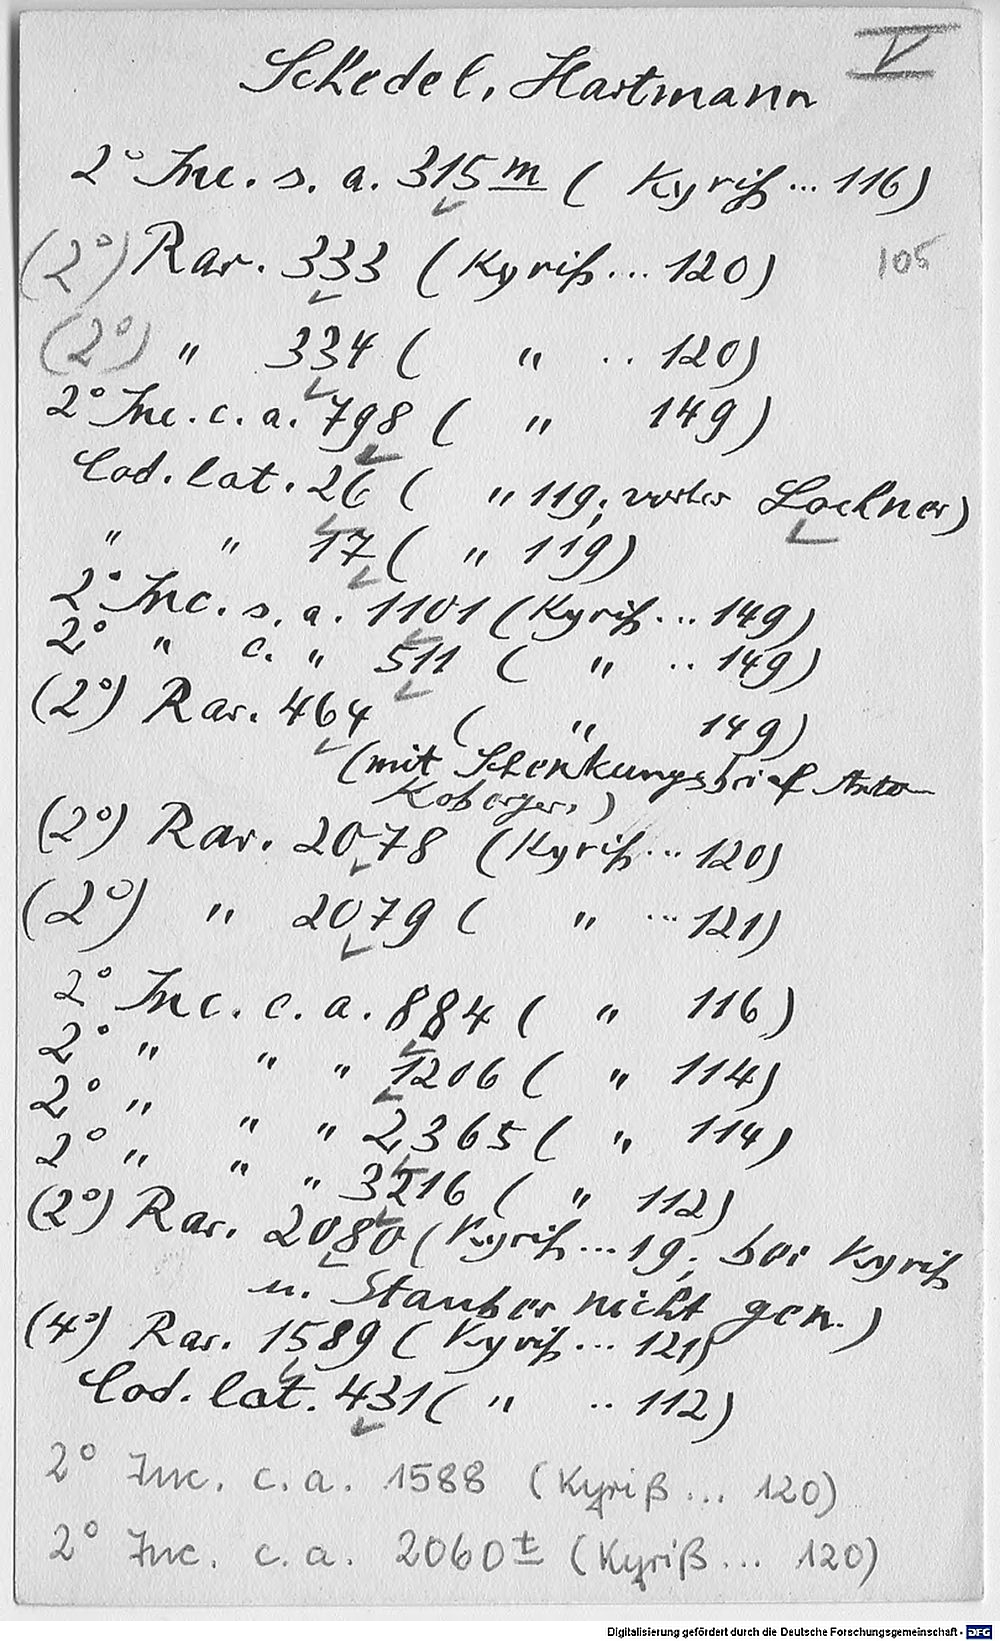 V
Schedel, Hartmann
2° Inc. s. a. 315 m ( Kyriß ... 116)
(2°) Rar. 333 ( Kyriß ... 120)
105
(2°) " 334 ( " .. 120)
2° Inc. c. a. 798 ( " 149)
Cod. lat. 26 ( " 119; Lochner)
" " 17 ( " 119)
2° Inc. s. a. 1101 (Kyriß ... 149)
2° " c. " 511 ( " .. 149)
(2°) Rar. 464 ( " 149)
(mit Schenkungsbrief Anton
Kobergers)
(2°) Rar. 2078 (Kyriß ... 120)
(2°) " 2079 ( " ... 121)
2° Inc. c. a. 884 ( " 116)
2° " " " 1206 ( " 114)
2° " " " 2365 ( " 114)
2° " " " 3216 ( " 112)
(2°) Rar. 2080 (Kyriß ... 19; bei Kyriß
u. Stauber nicht gen.)
(4°) Rar. 1589 ( Kyriß ... 121)
Cod. lat. 431 ( " .. 112)
2° Inc. c. a. 1588 (Kyriß ... 120)
2° Inc. c. a. 2060 t (Kyriß ... 120)
Digitalisierung gefördert durch die Deutsche Forschungsgemeinschaft - DFG